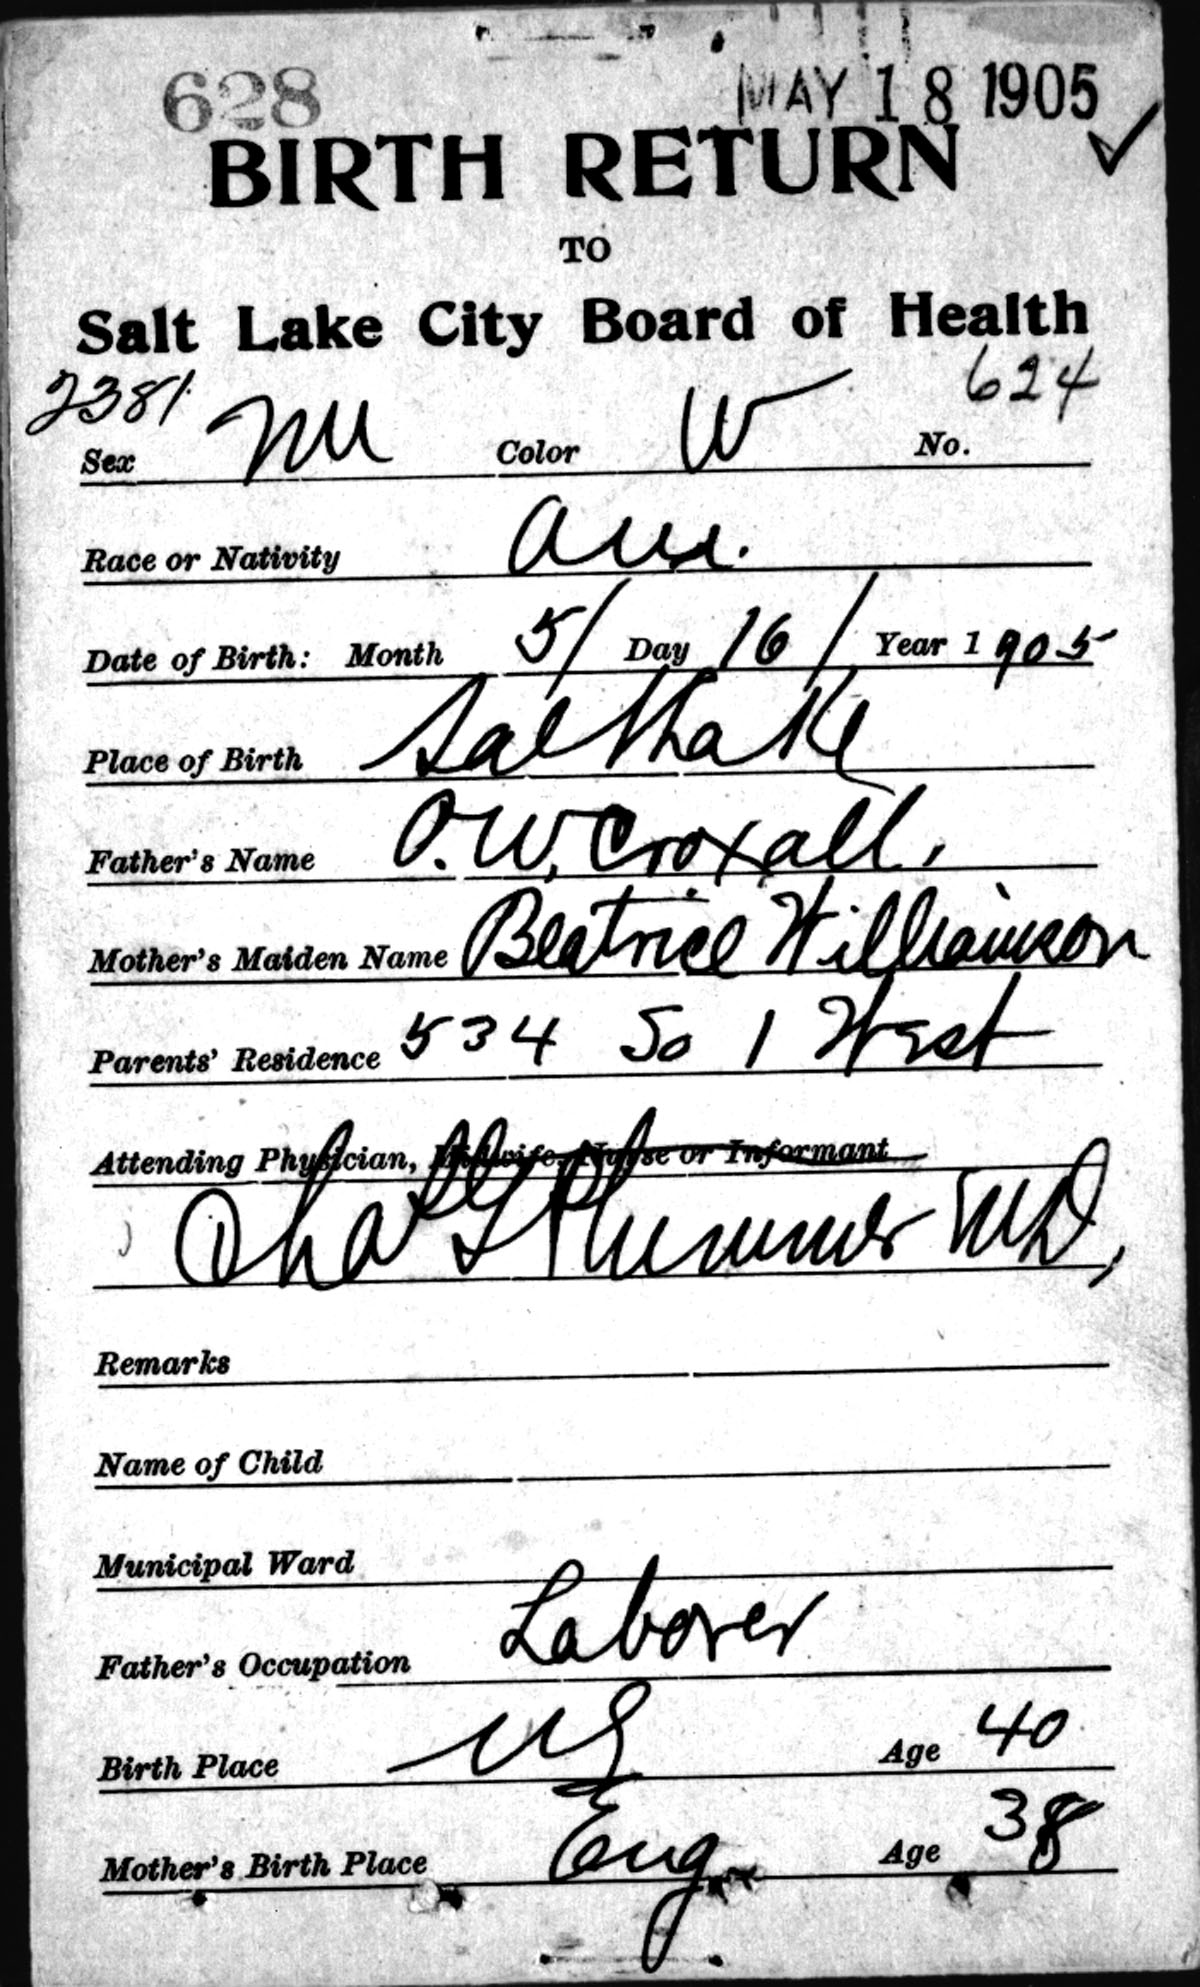 628 MAY 18 1905
BIRTH RETURN
TO
Salt Lake City Board of Health
2381 624
Sex M Color W No.
Race or Nativity Am.
Date of Birth: Month 5/ Day 16/ Year 1905
Place of Birth Salt Lake
Father's Name O. W. Croxall.
Mother's Maiden Name Beatrice Williamson
Parents' Residence 534 So 1 West
Attending Physician, Midwife, Nurse or Informant
Chas G Plummer MD,
Remarks
Name of Child
Municipal Ward
Father's Occupation Laborer
Birth Place US Age 40
Mother's Birth Place Eng. Age 38